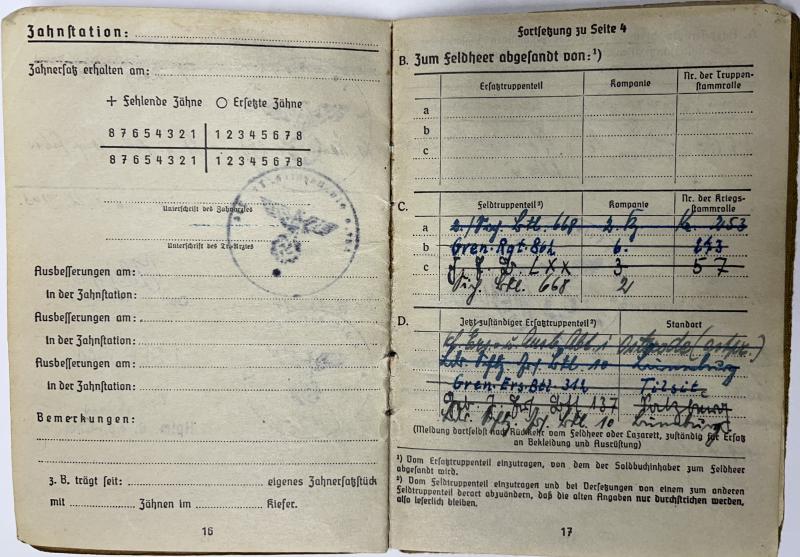 Zahnstation:
Zahnersatz erhalten am:
+ Fehlende Zähne ○ Ersetzte Zähne
8 7 6 5 4 3 2 1 1 2 3 4 5 6 7 8
8 7 6 5 4 3 2 1 1 2 3 4 5 6 7 8
Unterschrift des Zahnarztes
Unterschrift des Tr.-Arztes
Ausbesserungen am:
In der Zahnstation:
Ausbesserungen am:
In der Zahnstation:
Ausbesserungen am:
In der Zahnstation:
Bemerkungen:
z. B. trägt seit: eigenes Zahnersatzstück
mit Zähnen im Kiefer.
16
Fortsetzung zu Seite 4
B. Zum Feldheer abgesandt von:¹)
Ersatztruppenteil Kompanie Nr. der Truppen-
stammrolle
a
b
c
C. Feldtruppenteil²) Kompanie Nr. der Kriegs-
stammrolle
a 2./ Btl. 668 253
b Gren. Rgt. 6.
c LXX 3 57
Btl. 668 2
D. Jetzt zuständiger Ersatztruppenteil²) Standort
Btl. 10 Lüneburg
Gren. Ers. Btl. Tilsit
137
Btl. 10 Lüneburg
(Meldung dortselbst nach Rückkehr vom Feldheer oder Lazarett, zuständig für Ersatz
an Bekleidung und Ausrüstung)
¹) Vom Ersatztruppenteil einzutragen, von dem der Soldbuchinhaber zum Feldheer
abgesandt wird.
²) Vom Feldtruppenteil einzutragen und bei Versetzungen von einem zum anderen
Feldtruppenteil derart abzuändern, daß die alten Angaben nur durchstrichen werden,
also leserlich bleiben.
17